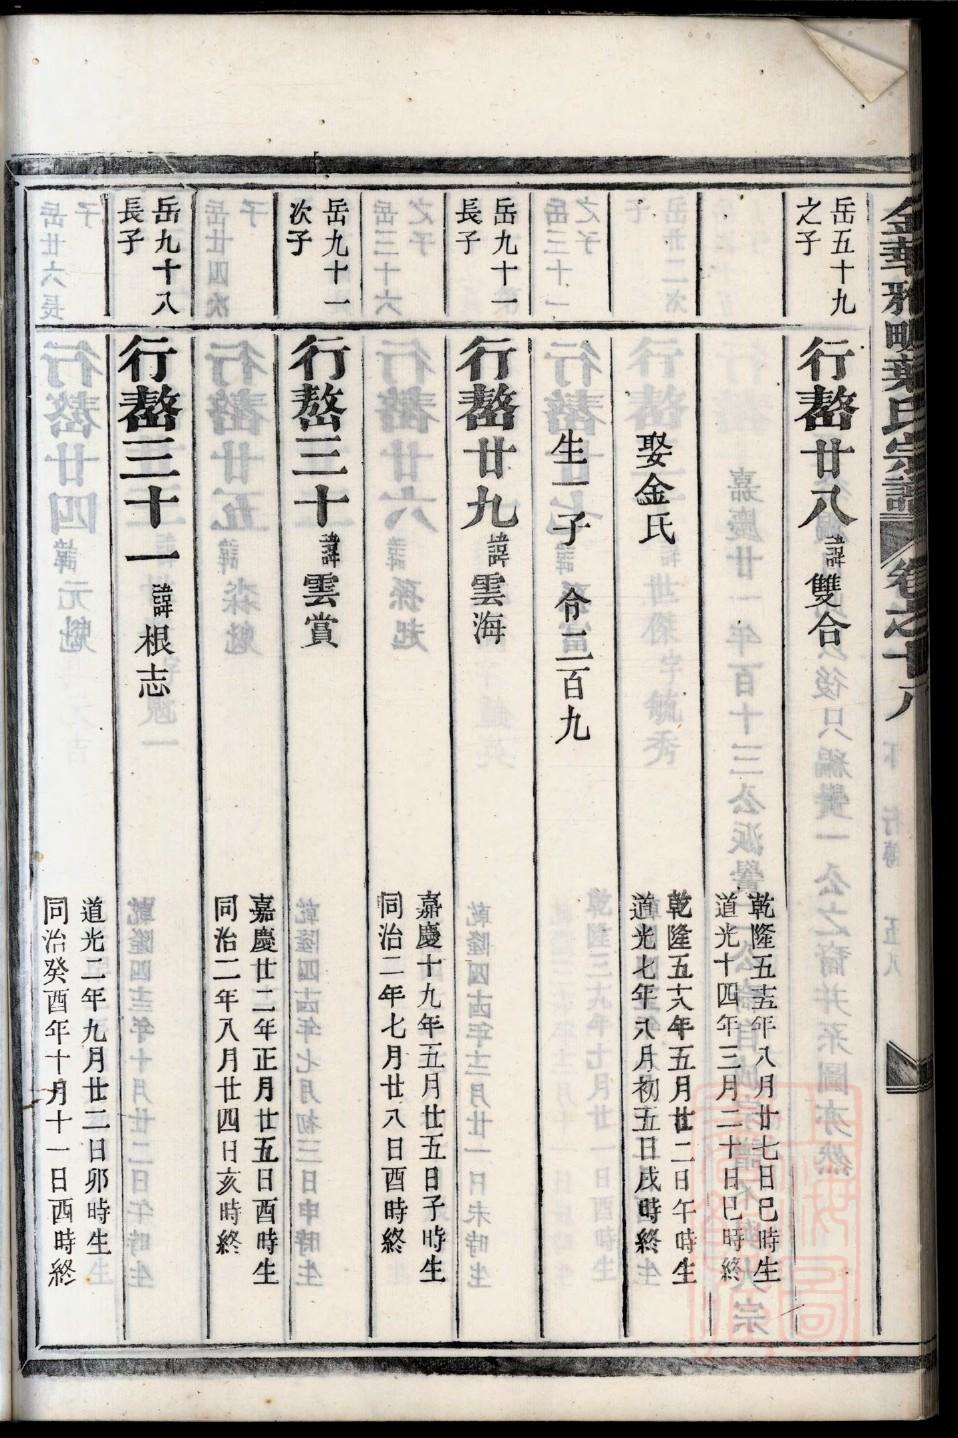 金華雅畈葉氏宗譜 卷之十八 下 行傳 五八
岳五十九
之子
行嶅廿八 諱雙合
乾隆五十五年八月廿七日巳時生
道光十四年三月二十日巳時終
娶金氏
乾隆五十八年五月廿二日午時生
道光七年六月初五日戌時終
生一子 令二百九
岳九十一
長子
行嶅廿九 諱雲海
嘉慶十九年五月廿五日子時生
同治二年七月廿八日酉時終
岳九十一
次子
行嶅三十 諱雲賞
嘉慶廿二年正月廿五日酉時生
同治二年八月廿四日亥時終
岳九十八
長子
行嶅三十一 諱根志
道光二年九月廿二日卯時生
同治癸酉年十月十一日酉時終